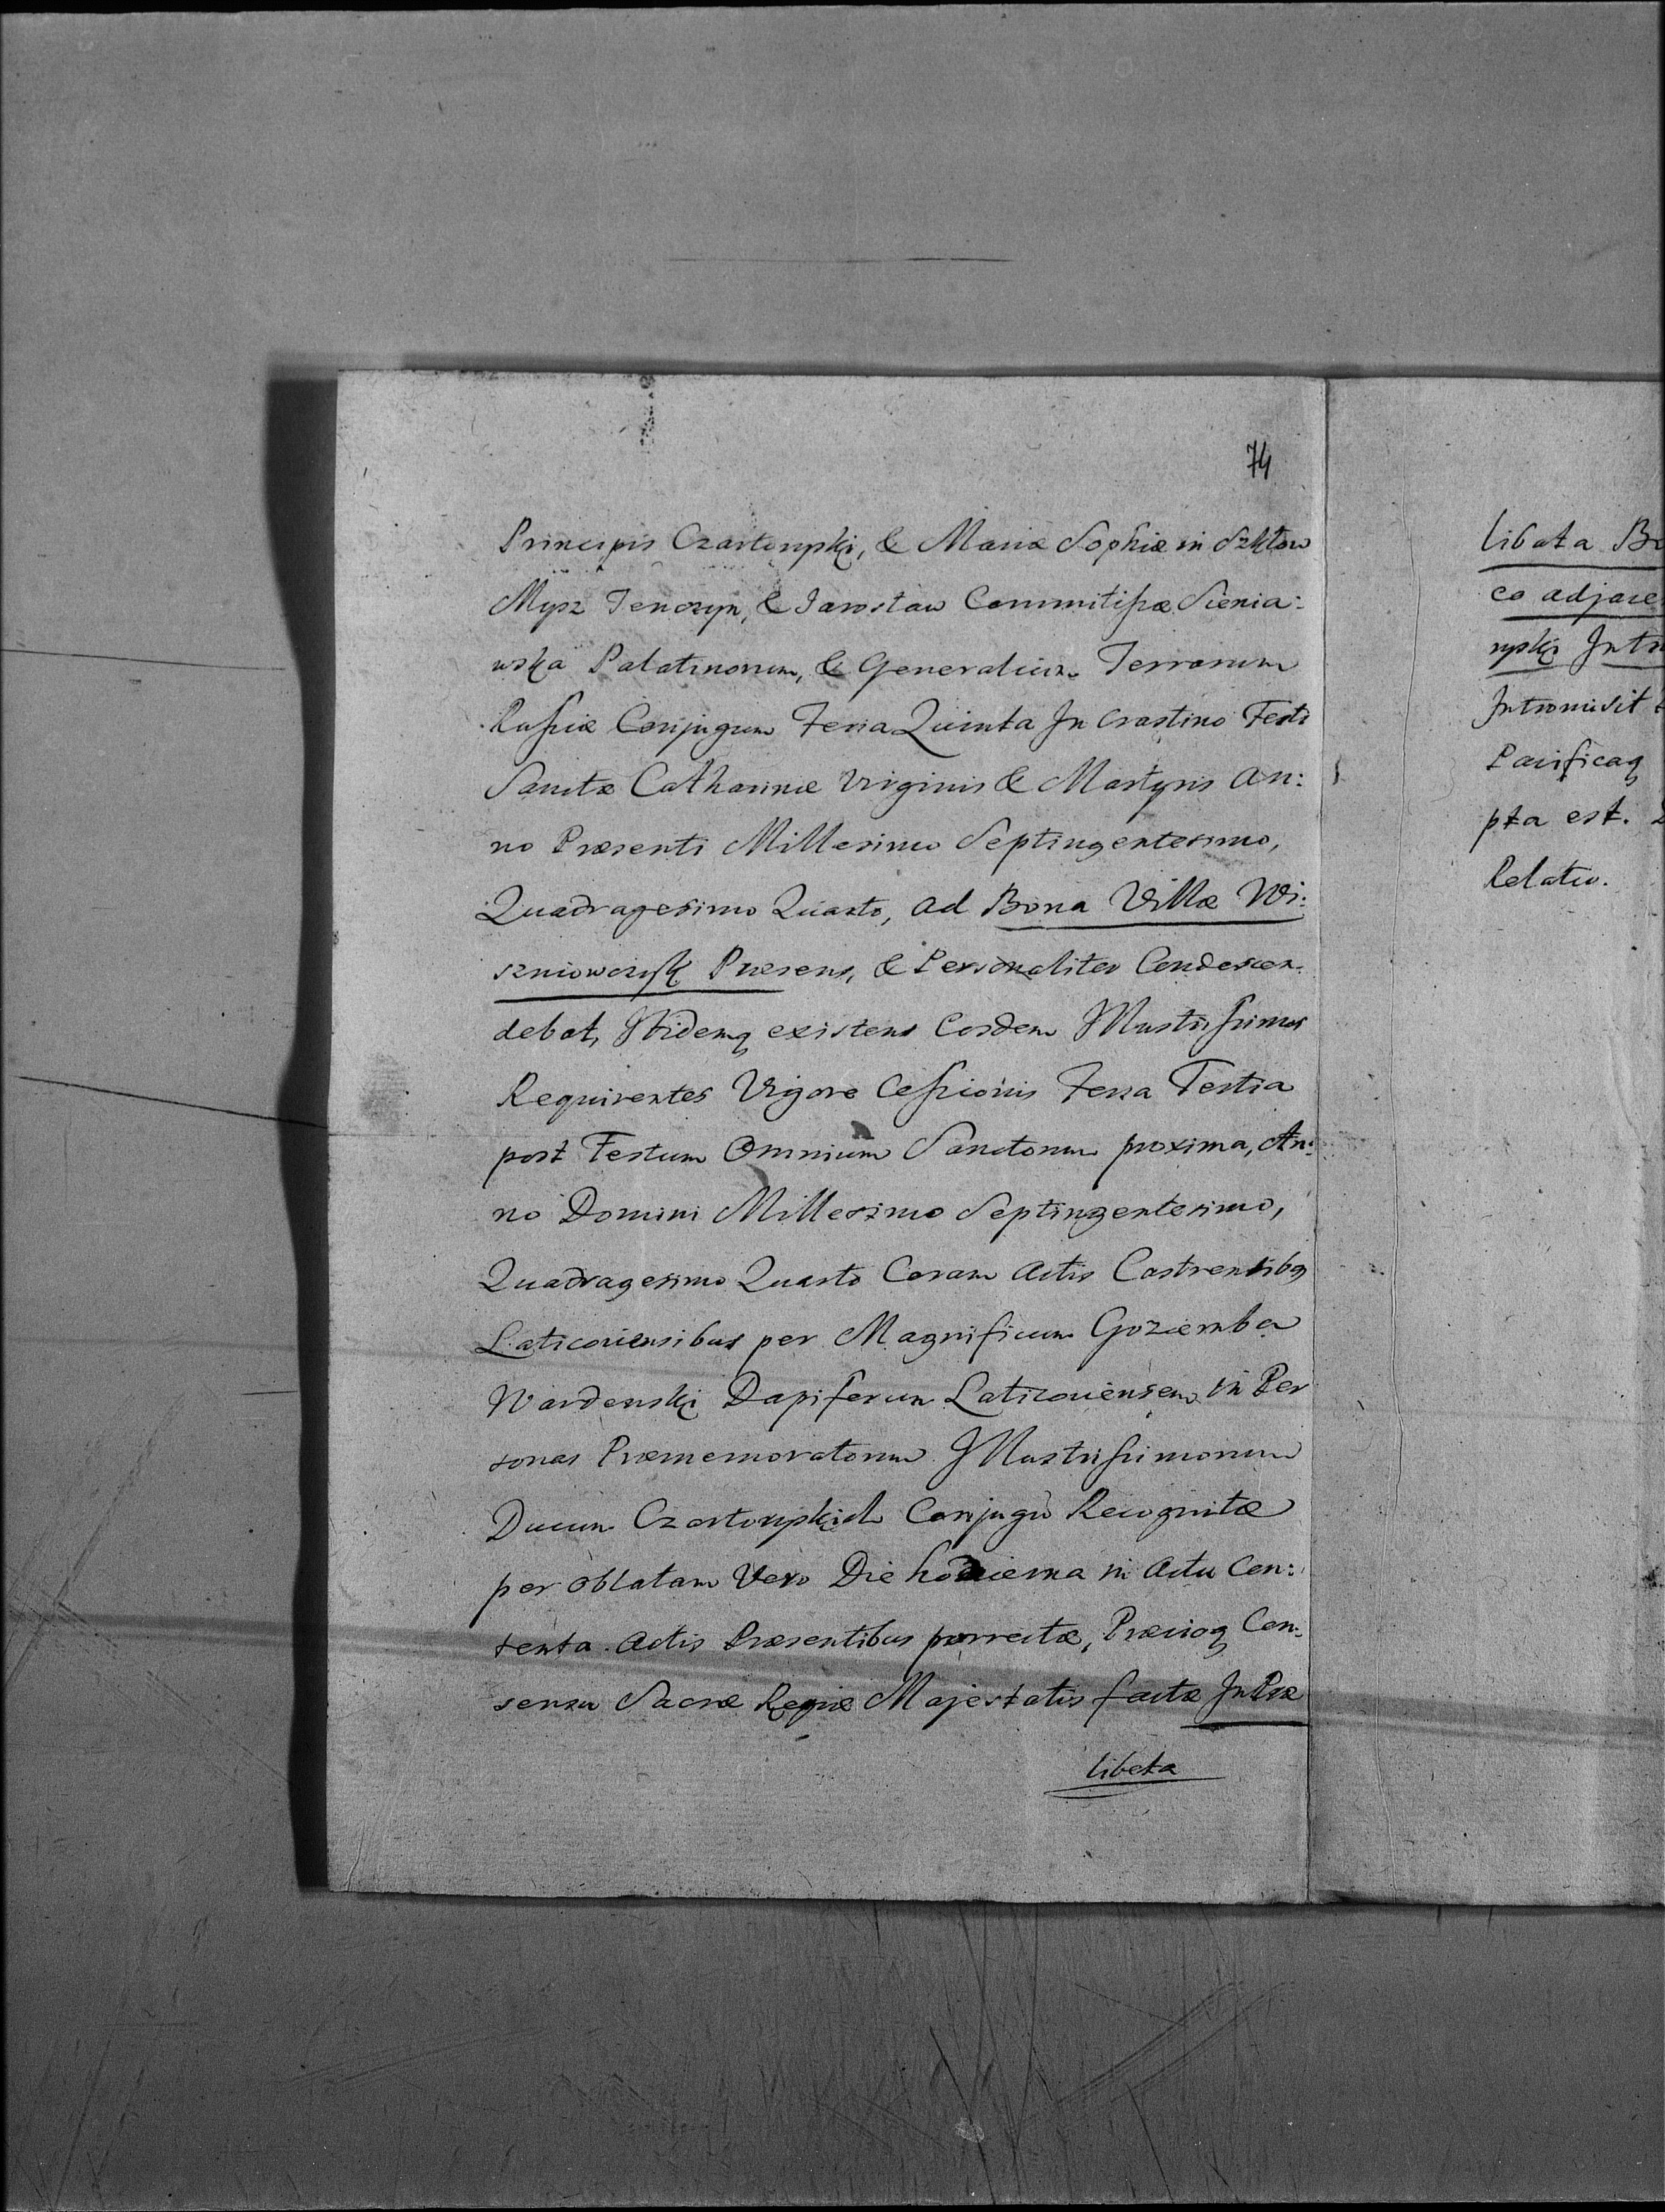 74
Principis Czartoryski, & Mariæ Sophiæ in Szkłow
Mysz Tenczyn, & Jarosław Commitissæ Sienia:
wska Palatinorum, & Generalium Terrarum
Russiæ Conjugum Feria Quinta In Crastino Festi
Sanctæ Catharinæ Virginis & Martyris An:
no Præsenti Millesimo Septingentesimo,
Quadragesimo Quarto, ad Bona Villæ Wi:
szniowczyk Præsens, & Personaliter Condescen:
debat, Ibidemq existens Eosdem Illustrissimos
Requirentes Vigore Cessionis Feria Tertia
post Festum Omnium Sanctorum proxima, An:
no Domini Millesimo Septingentesimo,
Quadragesimo Quarto Coram Actis Castrensibq
Laticoviensibus per Magnificum Goziemba
Wardenski Dapiferum Laticoviensem in Per
sonas Præmemoratorum Illustrissimorum
Ducum Czartoryskich Conjugū Recognitæ
per oblatam Vero Die hodierna in Actu Con:
tenta Actis Præsentibus porrectæ, Prævioq Con:
sensu Sacræ Regiæ Majestatis factæ In Præ
libata
libata Bo
co adjace
ryski Intr
Intromisit
Pacificaq
pta est.
Relatio.